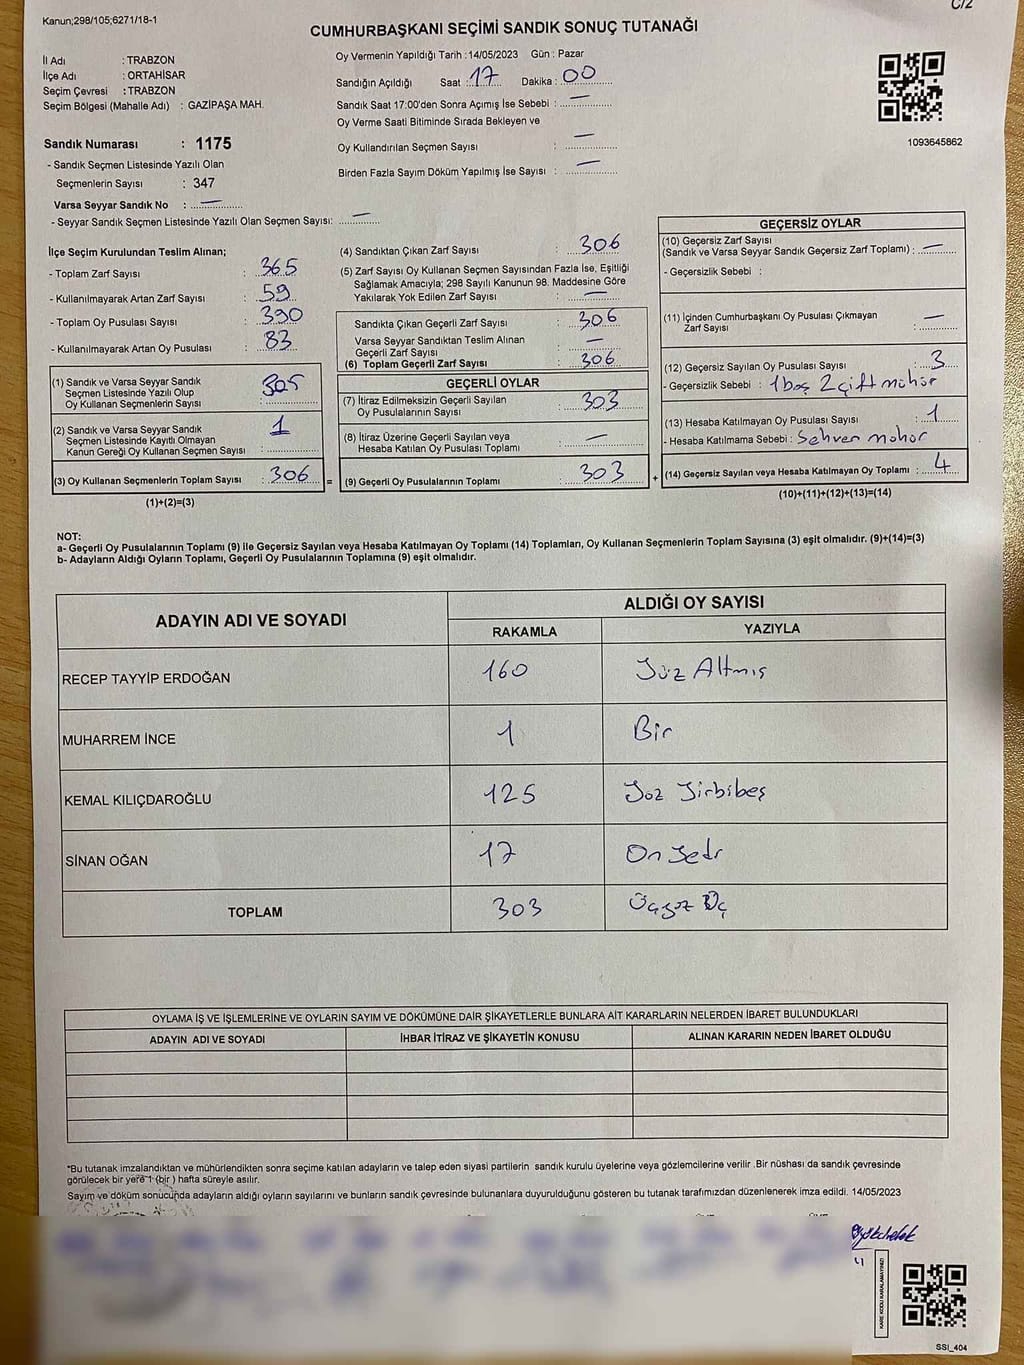 C/2
Kanun;298/105;6271/18-1
CUMHURBAŞKANI SEÇİMİ SANDIK SONUÇ TUTANAĞI
İl Adı : TRABZON
İlçe Adı : ORTAHİSAR
Seçim Çevresi : TRABZON
Seçim Bölgesi (Mahalle Adı) : GAZİPAŞA MAH.
Sandık Numarası : 1175
- Sandık Seçmen Listesinde Yazılı Olan
Seçmenlerin Sayısı : 347
Varsa Seyyar Sandık No : —
- Seyyar Sandık Seçmen Listesinde Yazılı Olan Seçmen Sayısı: —
Oy Vermenin Yapıldığı Tarih : 14/05/2023 Gün : Pazar
Sandığın Açıldığı Saat : 17 Dakika : 00
Sandık Saat 17:00'den Sonra Açımış İse Sebebi : —
Oy Verme Saati Bitiminde Sırada Bekleyen ve
Oy Kullandırılan Seçmen Sayısı : —
Birden Fazla Sayım Döküm Yapılmış İse Sayısı : —
1093645862
İlçe Seçim Kurulundan Teslim Alınan;
- Toplam Zarf Sayısı : 365
- Kullanılmayarak Artan Zarf Sayısı : 59
- Toplam Oy Pusulası Sayısı : 390
- Kullanılmayarak Artan Oy Pusulası : 83
(1) Sandık ve Varsa Seyyar Sandık
Seçmen Listesinde Yazılı Olup
Oy Kullanan Seçmenlerin Sayısı : 305
(2) Sandık ve Varsa Seyyar Sandık
Seçmen Listesinde Kayıtlı Olmayan
Kanun Gereği Oy Kullanan Seçmen Sayısı : 1
(3) Oy Kullanan Seçmenlerin Toplam Sayısı : 306 =
(1)+(2)=(3)
(4) Sandıktan Çıkan Zarf Sayısı : 306
(5) Zarf Sayısı Oy Kullanan Seçmen Sayısından Fazla İse, Eşitliği
Sağlamak Amacıyla; 298 Sayılı Kanunun 98. Maddesine Göre
Yakılarak Yok Edilen Zarf Sayısı : —
Sandıkta Çıkan Geçerli Zarf Sayısı : 306
Varsa Seyyar Sandıktan Teslim Alınan
Geçerli Zarf Sayısı : —
(6) Toplam Geçerli Zarf Sayısı : 306
GEÇERLİ OYLAR
(7) İtiraz Edilmeksizin Geçerli Sayılan
Oy Pusulalarının Sayısı : 303
(8) İtiraz Üzerine Geçerli Sayılan veya
Hesaba Katılan Oy Pusulası Toplamı : —
(9) Geçerli Oy Pusulalarının Toplamı : 303 +
GEÇERSİZ OYLAR
(10) Geçersiz Zarf Sayısı
(Sandık ve Varsa Seyyar Sandık Geçersiz Zarf Toplamı) : —
- Geçersizlik Sebebi :
(11) İçinden Cumhurbaşkanı Oy Pusulası Çıkmayan
Zarf Sayısı : —
(12) Geçersiz Sayılan Oy Pusulası Sayısı : 3
- Geçersizlik Sebebi : 1 boş 2 çift mühür
(13) Hesaba Katılmayan Oy Pusulası Sayısı : 1
- Hesaba Katılmama Sebebi : Sehven mühür
(14) Geçersiz Sayılan veya Hesaba Katılmayan Oy Toplamı : 4
(10)+(11)+(12)+(13)=(14)
NOT:
a- Geçerli Oy Pusulalarının Toplamı (9) ile Geçersiz Sayılan veya Hesaba Katılmayan Oy Toplamı (14) Toplamları, Oy Kullanan Seçmenlerin Toplam Sayısına (3) eşit olmalıdır. (9)+(14)=(3)
b- Adayların Aldığı Oyların Toplamı, Geçerli Oy Pusulalarının Toplamına (9) eşit olmalıdır.
ADAYIN ADI VE SOYADI ALDIĞI OY SAYISI
RAKAMLA YAZIYLA
RECEP TAYYİP ERDOĞAN 160 Yüz Altmış
MUHARREM İNCE 1 Bir
KEMAL KILIÇDAROĞLU 125 Yüz Yirbibeş
SİNAN OĞAN 17 On Yedi
TOPLAM 303 Üçyüz Üç
OYLAMA İŞ VE İŞLEMLERİNE VE OYLARIN SAYIM VE DÖKÜMÜNE DAİR ŞİKAYETLERLE BUNLARA AİT KARARLARIN NELERDEN İBARET BULUNDUKLARI
ADAYIN ADI VE SOYADI İHBAR İTİRAZ VE ŞİKAYETİN KONUSU ALINAN KARARIN NEDEN İBARET OLDUĞU
*Bu tutanak imzalandıktan ve mühürlendikten sonra seçime katılan adayların ve talep eden siyasi partilerin sandık kurulu üyelerine veya gözlemcilerine verilir .Bir nüshası da sandık çevresinde
görülecek bir yere 1 (bir ) hafta süreyle asılır.
Sayım ve döküm sonucunda adayların aldığı oyların sayılarını ve bunların sandık çevresinde bulunanlara duyurulduğunu gösteren bu tutanak tarafımızdan düzenlenerek imza edildi. 14/05/2023
KARE KODU KARALAMAYINIZ!
SSI_404